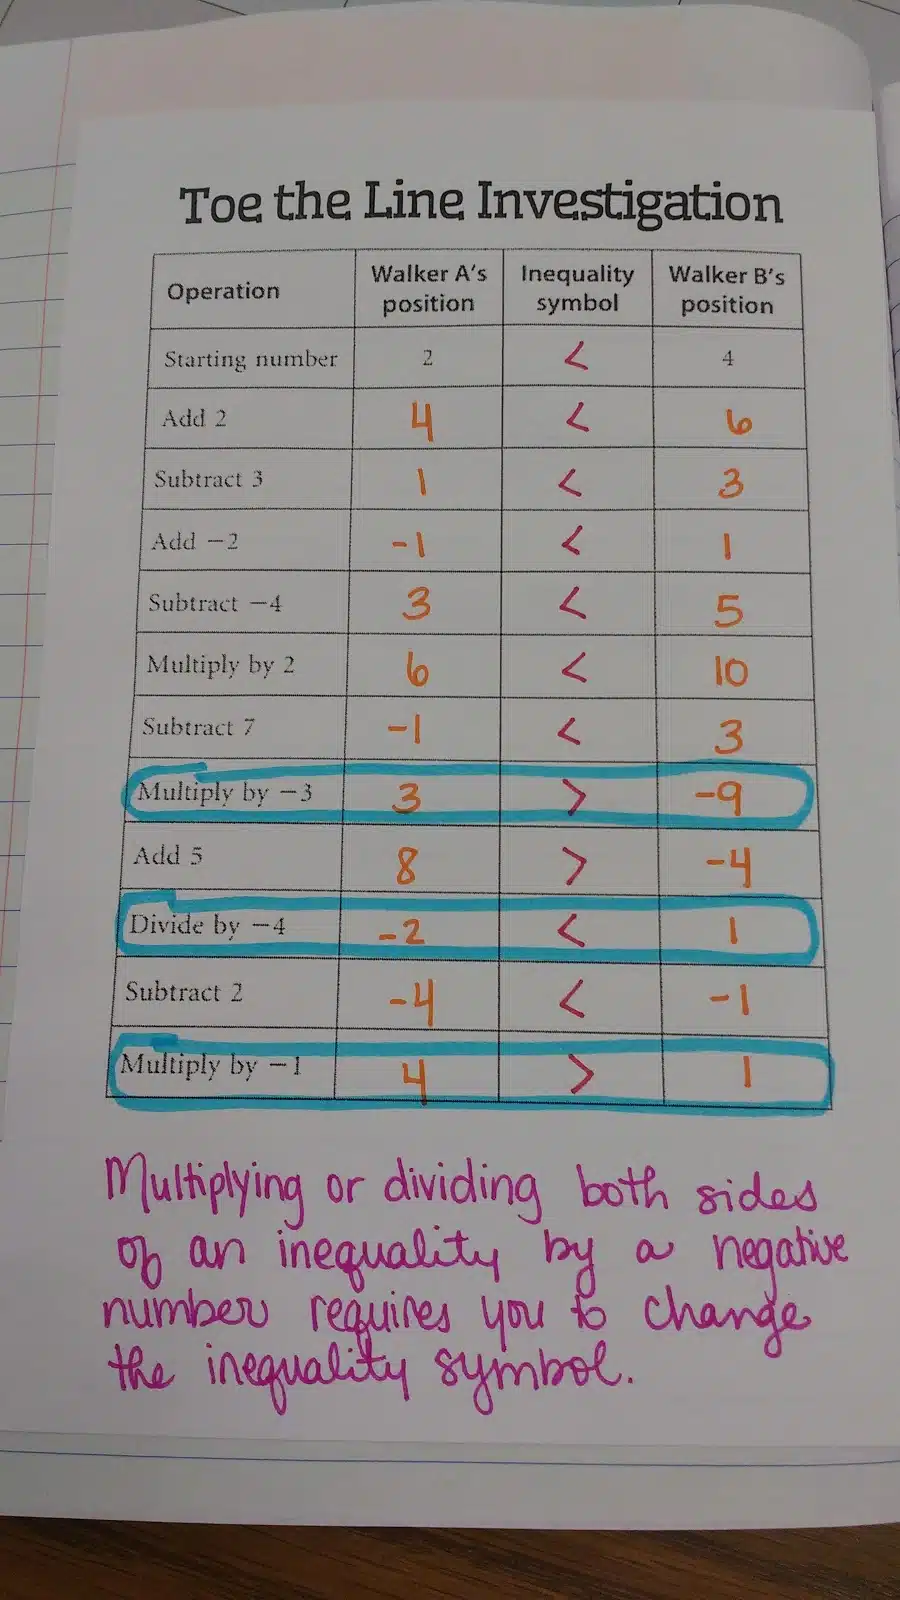 Toe the Line Investigation
Operation Walker A's position Inequality symbol Walker B's position
Starting number 2 < 4
Add 2 4 < 6
Subtract 3 1 < 3
Add −2 -1 < 1
Subtract −4 3 < 5
Multiply by 2 6 < 10
Subtract 7 -1 < 3
Multiply by −3 3 > -9
Add 5 8 > -4
Divide by −4 -2 < 1
Subtract 2 -4 < -1
Multiply by −1 4 > 1
Multiplying or dividing both sides
of an inequality by a negative
number requires you to change
the inequality symbol.